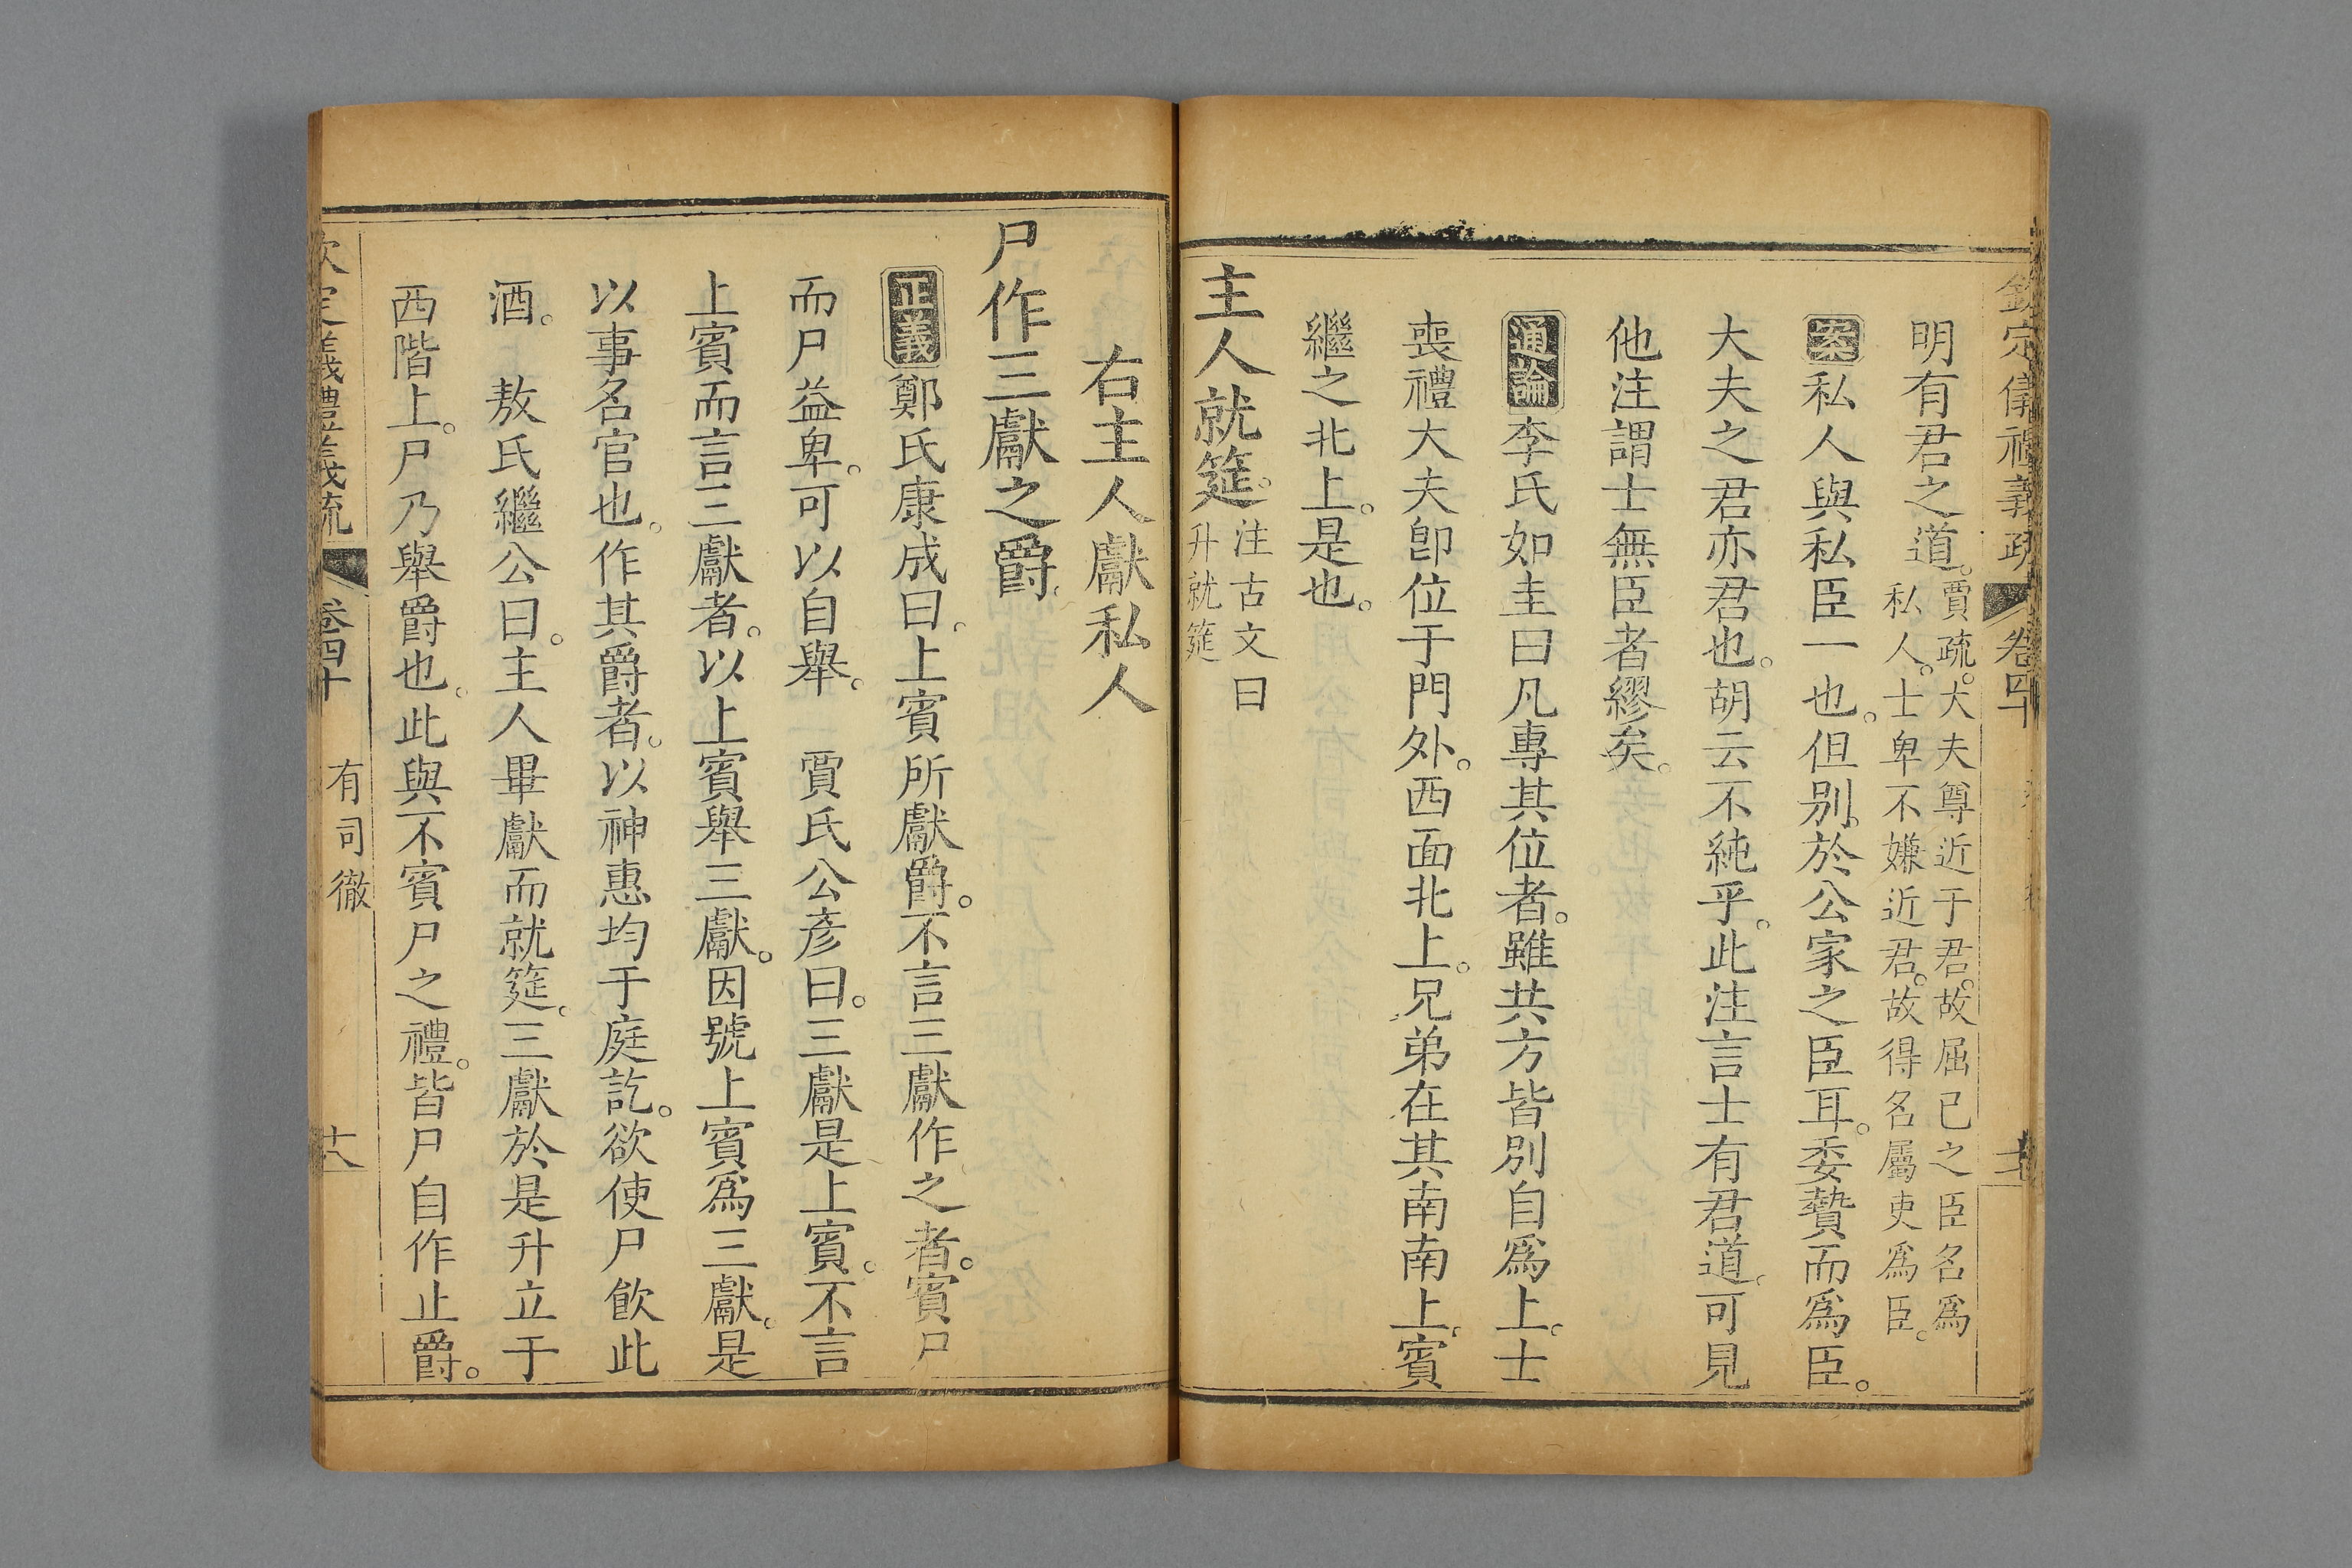 欽定儀禮義疏 卷四十
明有君之道。賈疏。大夫尊近于君。故屈已之臣名爲
私人。士卑不嫌近君。故得名屬吏爲臣。
案私人與私臣一也。但別於公家之臣耳。委贄而爲臣。
大夫之君亦君也。胡云不純乎。此注言士有君道。可見
他注謂士無臣者繆矣。
通論李氏如圭曰凡專其位者。雖共方皆別自爲上。士
喪禮大夫卽位于門外。西面北上。兄弟在其南南上。賓
繼之北上。是也。
主人就筵。注古文曰
升就筵
右主人獻私人
尸作三獻之爵。
正義鄭氏康成曰。上賓所獻爵。不言三獻作之者。賓尸
而尸益卑。可以自舉。 賈氏公彥曰。三獻是上賓。不言
上賓而言三獻者。以上賓舉三獻。因號上賓爲三獻。是
以事名官也。作其爵者。以神惠均于庭訖。欲使尸飮此
酒。 敖氏繼公曰。主人畢獻而就筵。三獻於是升立于
西階上。尸乃舉爵也。此與不賓尸之禮。皆尸自作止爵。
欽定儀禮義疏 卷四十 有司徹 十八